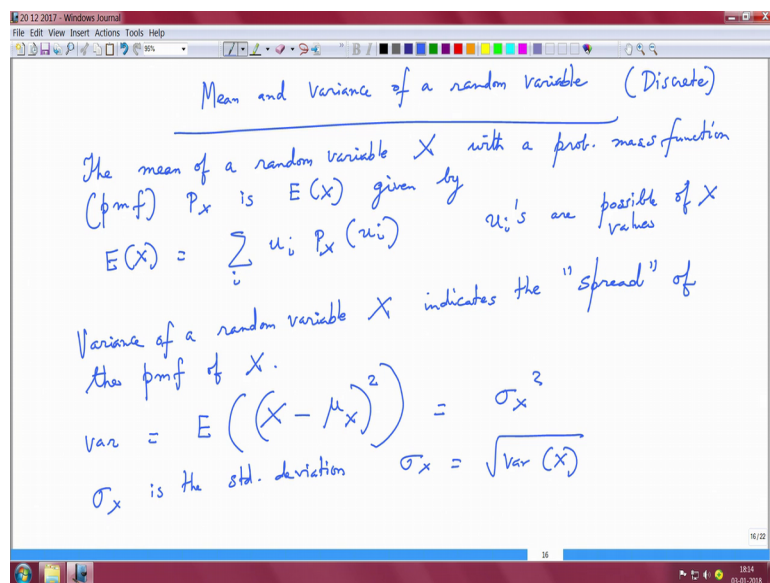 20 12 2017 - Windows Journal
File Edit View Insert Actions Tools Help
96%
Mean and Variance of a random variable (Discrete)
The mean of a random variable X with a prob. mass function
(pmf) Px is E(X) given by
E(X) = Σ_i u_i P_X(u_i) u_i's are possible values of X
Variance of a random variable X indicates the "spread" of
the pmf of X.
var = E((X - μ_X)^2) = σ_X^2
σ_X is the std. deviation σ_X = √Var (X)
16/22
16
18:14
03-01-2018